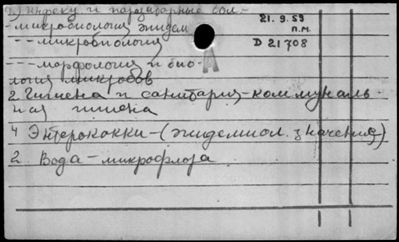 2) Инфекц и паразитарные бол-
- микробиология эпидем
21. 9. 59
п.м.
- - микробиология
D 21708
- - - морфология и био-
логия микробов
А
2 Гигиена и санитария-коммуналь-
ная гигиена
4 Энтерококки - (эпидемиол. значение)
2 Вода - микрофлора